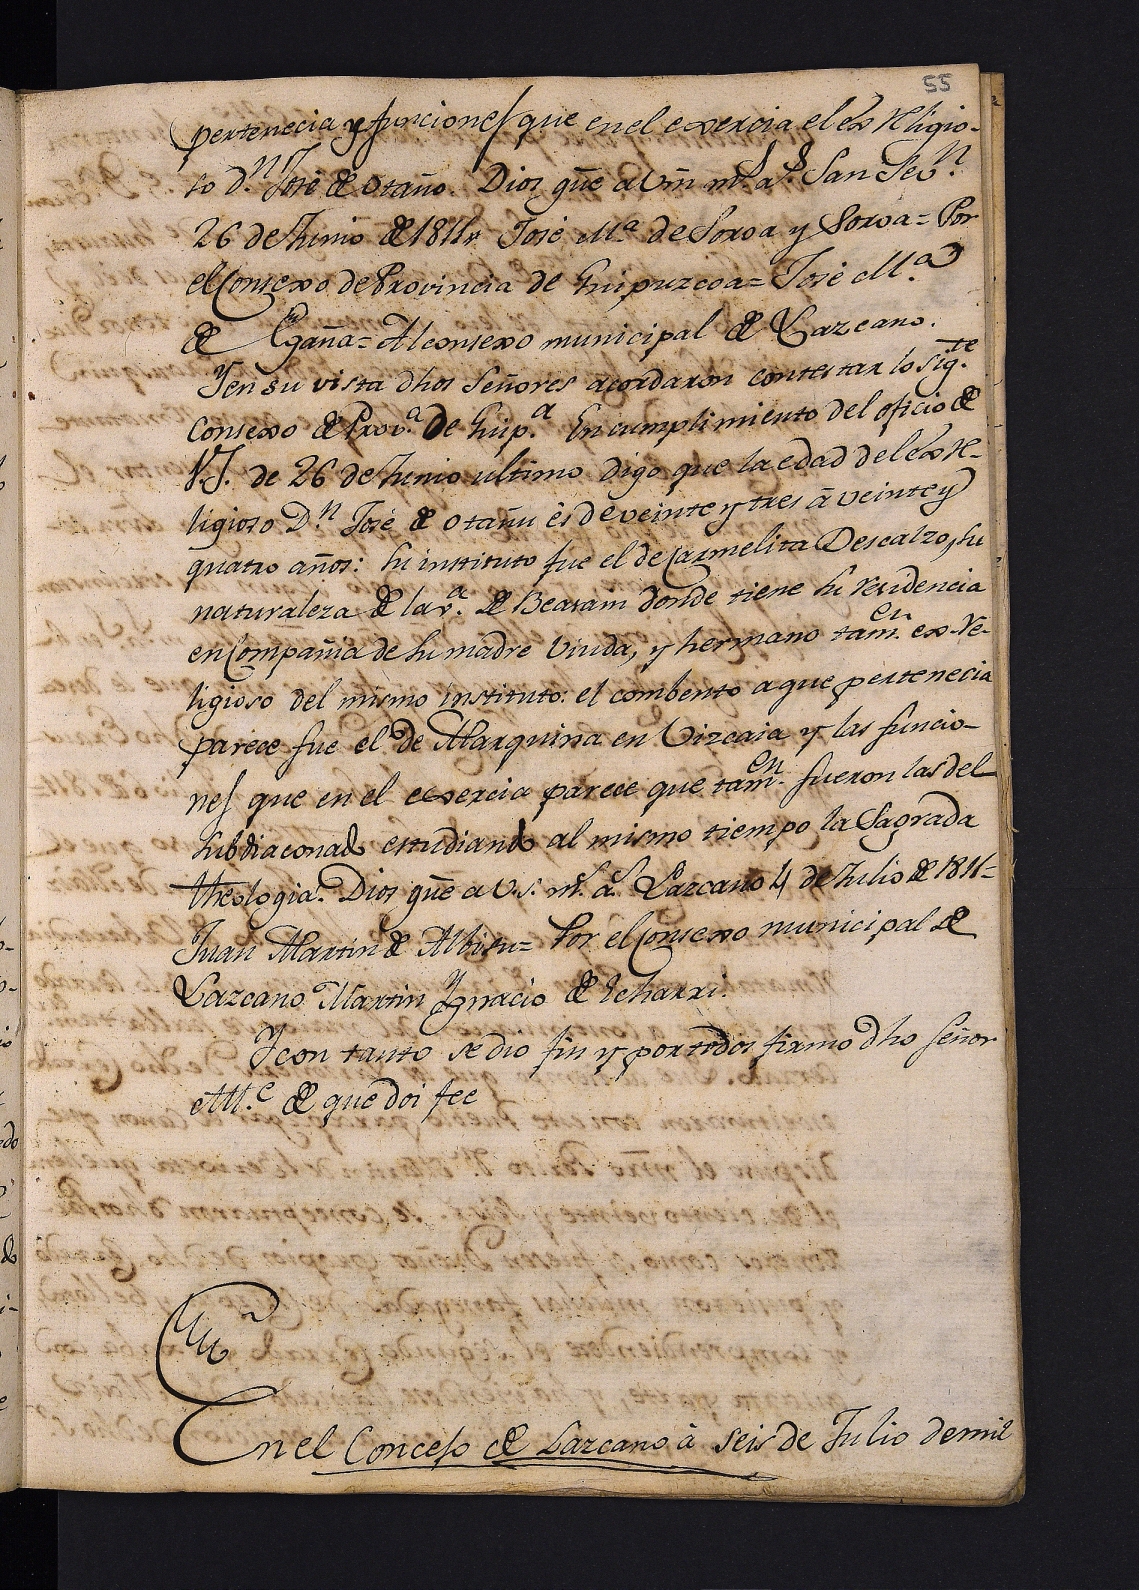 55
pertenecia y funciones que en el exercia el ex Religio-
so D.n José de Otaño. Dios gũe a Vm̃ m.s a.s San Seu.n
26 de Junio de 1811= José M.a de Soroa y Soroa= Por
el Consexo de Provincia de Guipuzcoa= José M.a
de Egaña= Al consexo municipal de Lazcano.
Y en su vista dhos Señores acordaron contestar lo sig.te
Consexo de Prov.a de Guip.a En cumplimiento del oficio de
V.S. de 26 de Junio ultimo digo que la edad del ex Re-
ligioso D.n José de Otañu és de veinte y tres á veinte y
quatro años: su instituto fue el de Carmelita Descalzo, su
naturaleza de la v.a de Beasain donde tiene su residencia
en Compañia de su madre Viuda, y hermano tam.en ex-Re-
ligioso del mismo instituto: el combento a que pertenecia
parece fue el de Marquina en Vizcaia y las funcio-
nes que en el exercia parece que tam.en fueron las del
Subdiaconado estudiando al mismo tiempo la Sagrada
theologia. Dios gũe a V.S. m.s a.s Lazcano 4 de Julio de 1811=
Juan Martin de Albisu= Por el Consexo municipal de
Lazcano Martin Ygnacio de Echarri.
Y con tanto se dio fin y por todos firmo dho Señor
All.e de que doi fee
En el Concejo de Lazcano à seis de Julio de mil